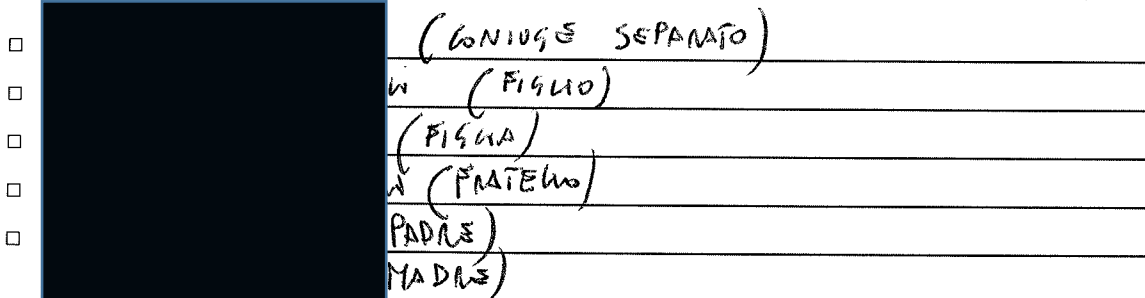 (CONIUGE SEPARATO)
(FIGLIO)
(FIGLIA)
(FRATELLO)
PADRE)
MADRE)